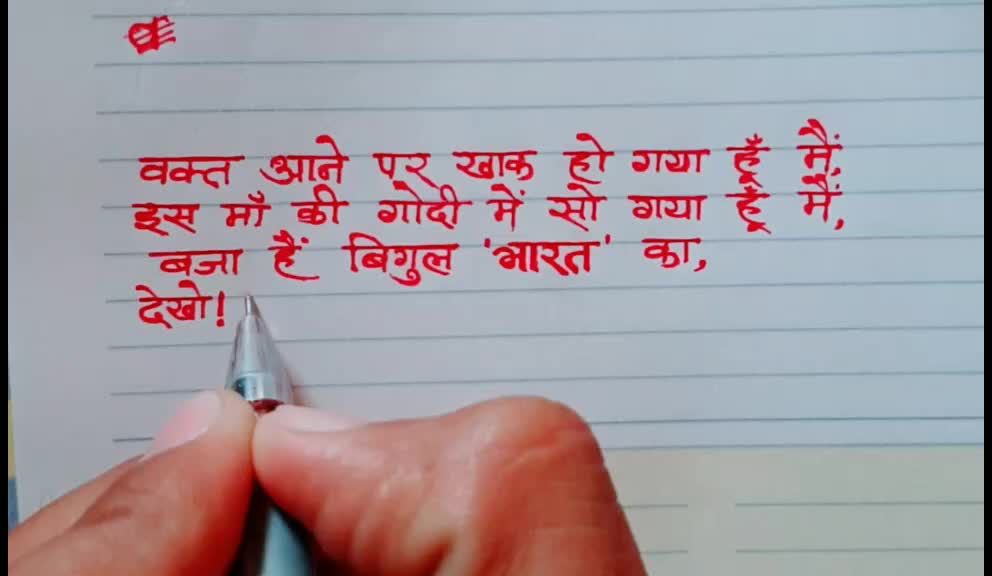 वक्त आने पर खाक हो गया हूँ मैं,
इस माँ की गोदी में सो गया हूँ मैं,
बजा हैं बिगुल 'भारत' का,
देखो!